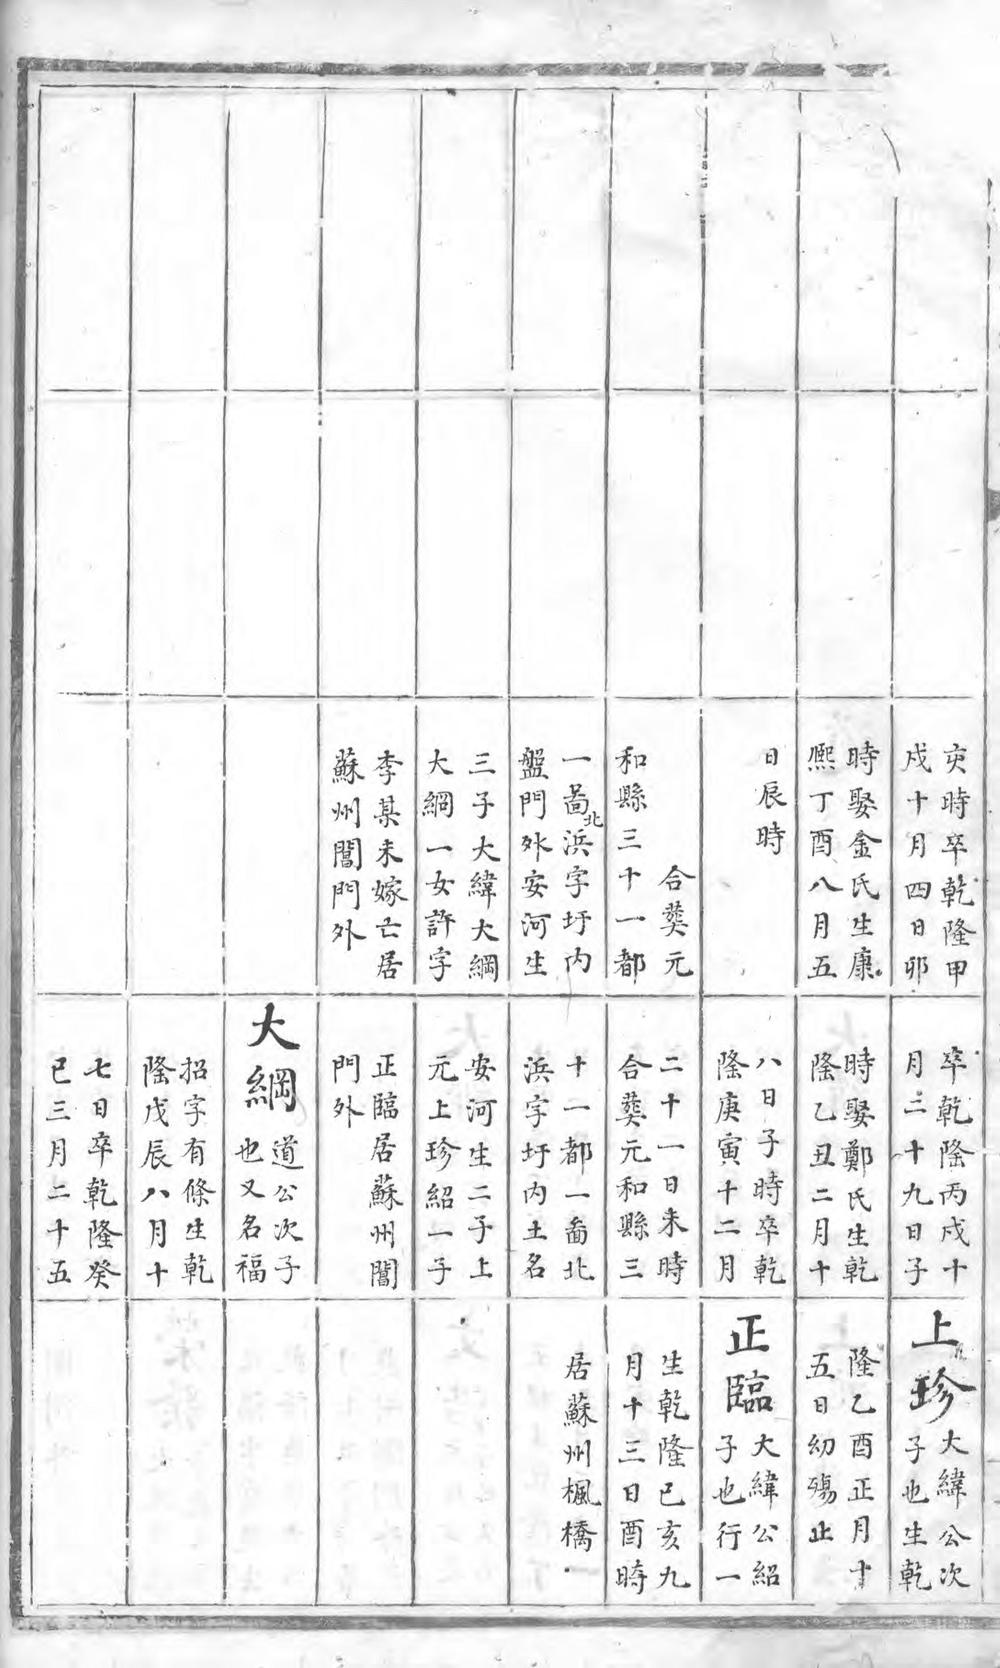 寅時卒乾隆甲
戌十月四日卯
時娶金氏生康
熙丁酉八月五
日辰時
合葬元
和縣三十一都
一啚北浜字圩内
盤門外安河生
三子大緯大綱
大綱一女許字
李某未嫁亡居
蘇州閶門外
卒乾隆丙戌十
月二十九日子
時娶鄭氏生乾
隆乙丑二月十
八日子時卒乾
隆庚寅十二月
二十一日未時
合葬元和縣三
十一都一啚北
浜字圩内土名
安河生二子上
元上珍紹一子
正臨居蘇州閶
門外
大綱
道公次子
也又名福
招字有條生乾
隆戊辰八月十
七日卒乾隆癸
巳三月二十五
上珍
大緯公次
子也生乾
隆乙酉正月十
五日幼殤止
正臨
大緯公紹
子也行一
生乾隆己亥九
月十三日酉時
居蘇州楓橋